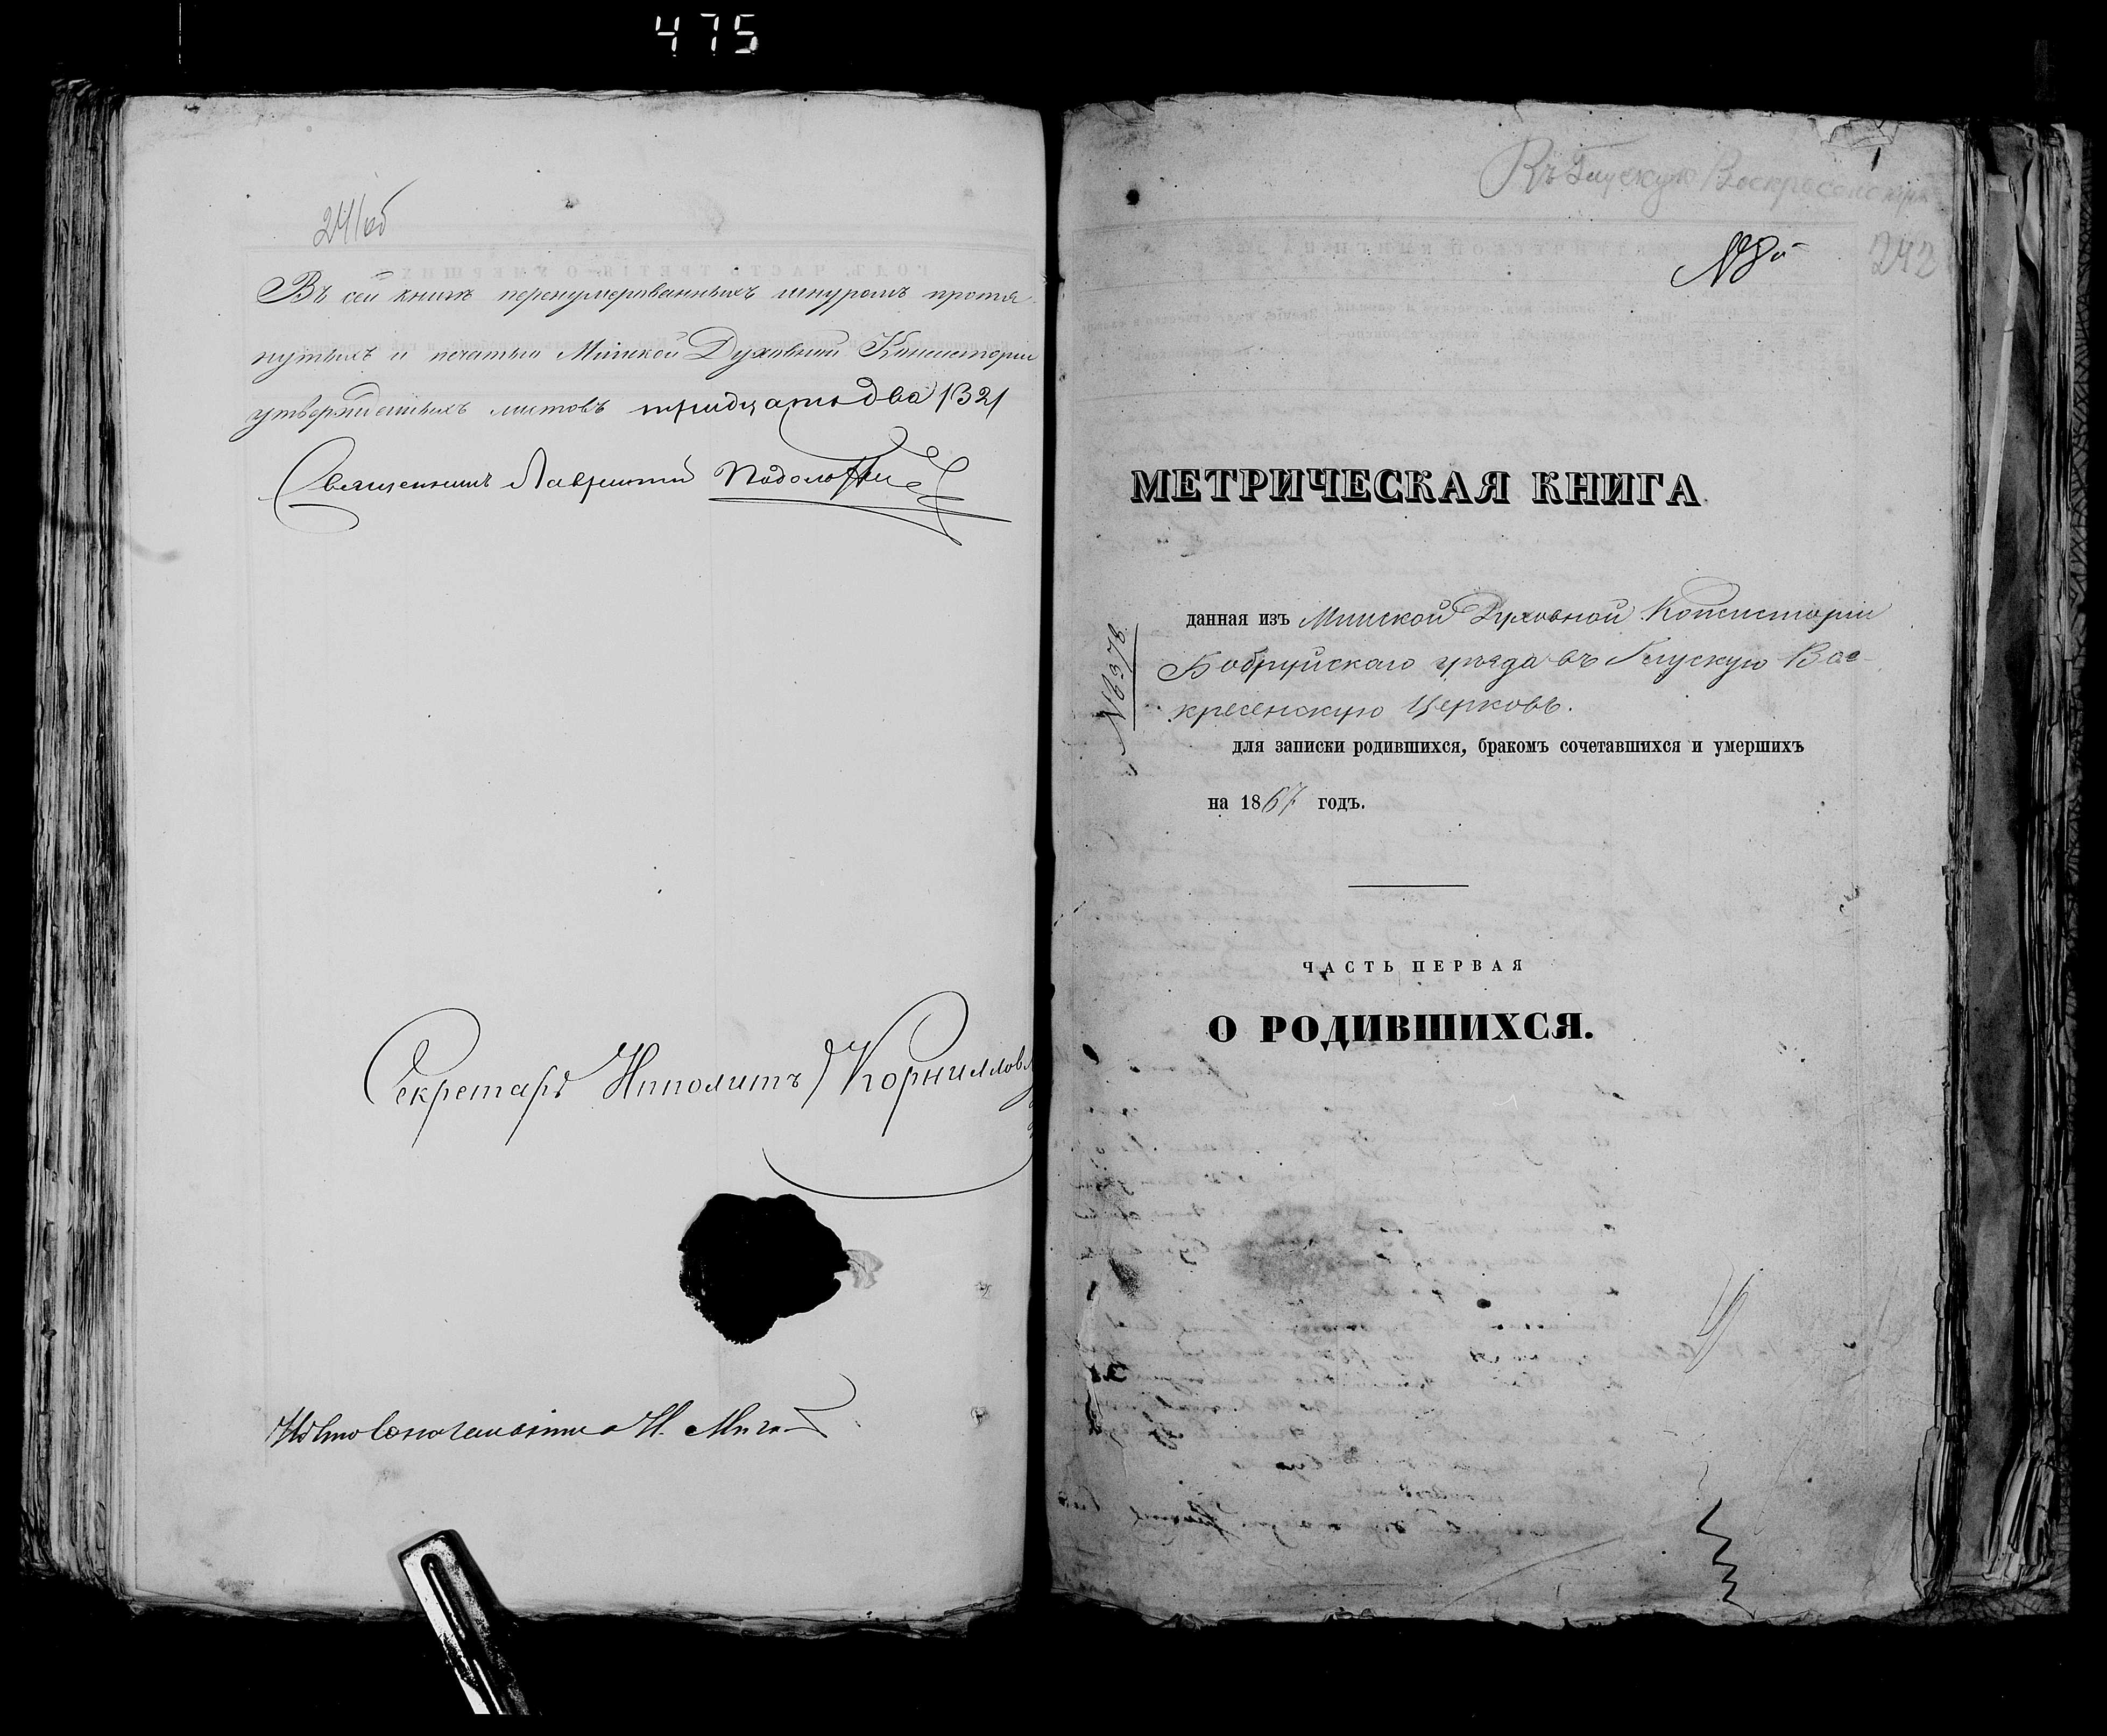 475
241об
Въ сей книгѣ перенумерованныхъ шнуромъ протя-
нутыхъ и печатью Минской Духовной Консисторіи
утвержденныхъ листовъ тридцать два /32/
Священникъ Лаврентій
Секретарь Ипполитъ Корнилов
Въ Глускую Воскресенскую
1
242
МЕТРИЧЕСКАЯ КНИГА
данная изъ Минской Духовной Консисторіи
Бобруйскаго уѣзда въ Глускую Вос-
кресенскую Церковь.
№ 6378
для записки родившихся, бракомъ сочетавшихся и умершихъ
на 1867 годъ.
ЧАСТЬ ПЕРВАЯ
О РОДИВШИХСЯ.